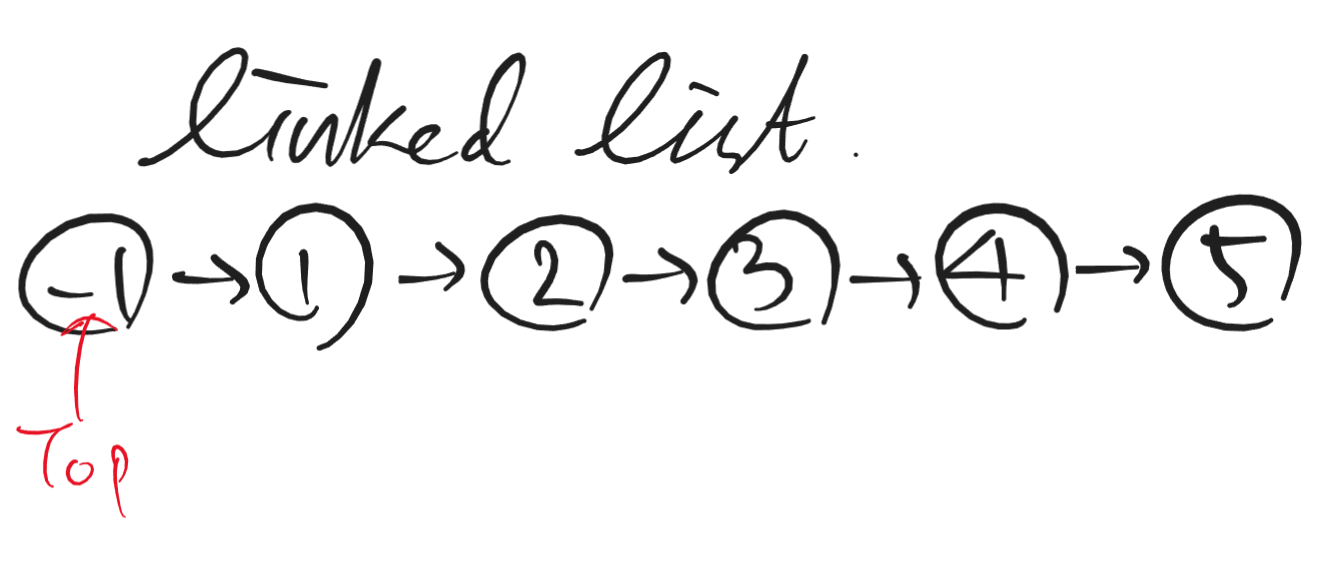 linked list.
-1 → 1 → 2 → 3 → 4 → 5
Top